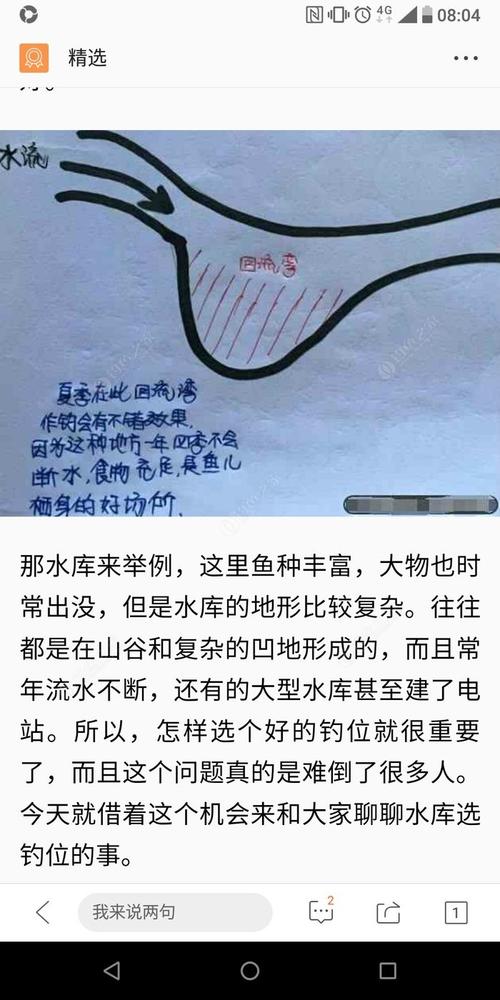 4G 08:04
精选
水流
回流湾
夏季在此回流湾
作钓会有不错效果,
因为这种地方一年四季不会
断水,食物充足,是鱼儿
栖身的好场所.
那水库来举例，这里鱼种丰富，大物也时
常出没，但是水库的地形比较复杂。往往
都是在山谷和复杂的凹地形成的，而且常
年流水不断，还有的大型水库甚至建了电
站。所以，怎样选个好的钓位就很重要
了，而且这个问题真的是难倒了很多人。
今天就借着这个机会来和大家聊聊水库选
钓位的事。
我来说两句
2
1